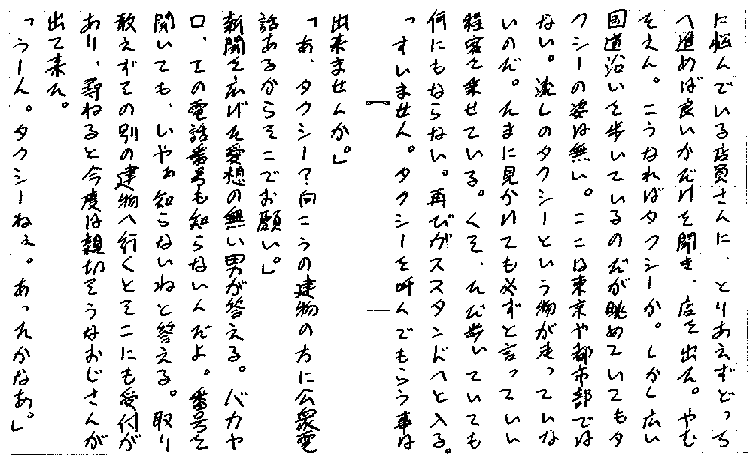 に悩んでいる店員さんに、とりあえずどっち
へ進めば良いかだけを聞き、店を出た。やむ
をえん。こうなればタクシーか。しかし広い
国道沿いを歩いているのだが眺めていてもタ
クシーの姿は無い。ここは東京や都市部では
ない。流しのタクシーという物が走っていな
いのだ。たまに見かけても必ずと言っていい
程客を乗せている。くそ、ただ歩いていても
何にもならない。再びガススタンドへと入る。
「すいません。タクシーを呼んでもらう事は
出来ませんか。」
「あ、タクシー？向こうの建物の方に公衆電
話あるからそこでお願い。」
新聞を広げた愛想の無い男が答える。バカヤ
ロ、エの電話番号も知らないんだよ。番号を
聞いても、いやぁ知らないねと答える。取り
敢えずその別の建物へ行くとそこにも受付が
あり、尋ねると今度は親切そうなおじさんが
出て来た。
「うーん。タクシーねぇ。あったかなあ。」